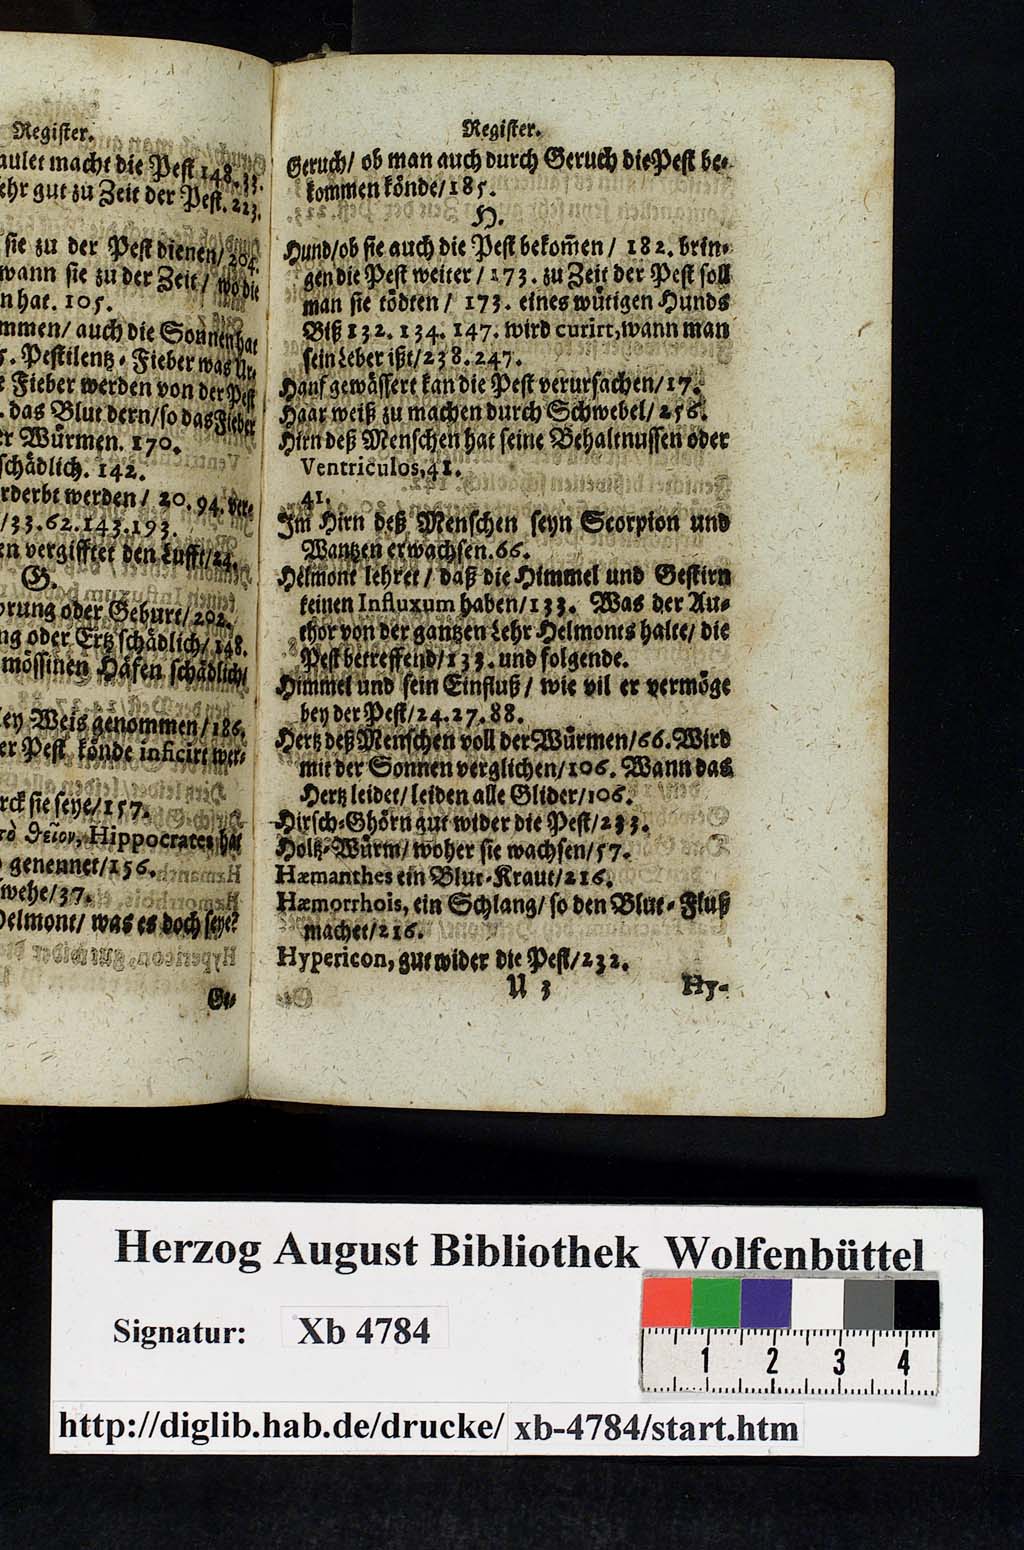 Register.
aulet macht die Pest 148.
ehr gut zu Zeit der Pest. 223.
sie zu der Pest dienen/204.
wann sie zu der Zeit/ wo die
n hat. 105.
mmen/ auch die Sonnen hat
5. Pestilentz-Fieber was Ur-
Fieber werden von der Pest
. das Blut dern/so das Fieber
er Würmen. 170.
schädlich. 142.
rderbt werden/ 20. 94. ver-
/33. 62. 143. 193.
en vergifftet den Lufft/24.
G.
prung oder Geburt/202.
ng oder Ertz schädlich/148.
mössinen Häfen schädlich/
ley Weis genommen/186.
er Pest könde inficirt wer-
rck sie seye/157.
θεῖον, Hippocrates hat
genennet/156.
wehe/37.
Helmont/ was es doch seye?
Ge-
Register.
Geruch/ ob man auch durch Geruch die Pest be-
kommen könde/185.
H.
Hund/ob sie auch die Pest bekom̃en/ 182. brin-
gen die Pest weiter/ 173. zu Zeit der Pest soll
man sie tödten/ 173. eines wütigen Hunds
Biß 132. 134. 147. wird curirt,wann man
sein Leber ißt/238. 247.
Hanf gewässert kan die Pest verursachen/17.
Haar weiß zu machen durch Schwebel/256.
Hirn deß Menschen hat seine Behaltnussen oder
Ventriculos,41.
41.
Im Hirn deß Menschen seyn Scorpion und
Wantzen erwachsen.66.
Helmont lehret/ daß die Himmel und Gestirn
keinen Influxum haben/133. Was der Au-
thor von der gantzen Lehr Helmonts halte/ die
Pest betreffend/133. und folgende.
Himmel und sein Einfluß/ wie vil er vermöge
bey der Pest/24. 27. 88.
Hertz deß Menschen voll der Würmen/66. Wird
mit der Sonnen verglichen/106. Wann das
Hertz leidet/ leiden alle Glider/106.
Hirsch-Ghörn gut wider die Pest/233.
Holtz-Würm/ woher sie wachsen/57.
Hæmanthes ein Blut-Kraut/216.
Hæmorrhois, ein Schlang/ so den Blut-Fluß
machet/216.
Hypericon, gut wider die Pest/232.
U 3
Hy-
Herzog August Bibliothek Wolfenbüttel
Signatur: Xb 4784
1 2 3 4
http://diglib.hab.de/drucke/ xb-4784/start.htm